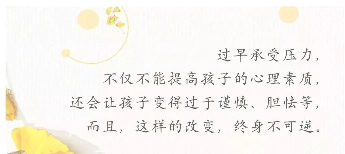 过早承受压力，
不仅不能提高孩子的心理素质，
还会让孩子变得过于谨慎、胆怯等，
而且，这样的改变，终身不可逆。